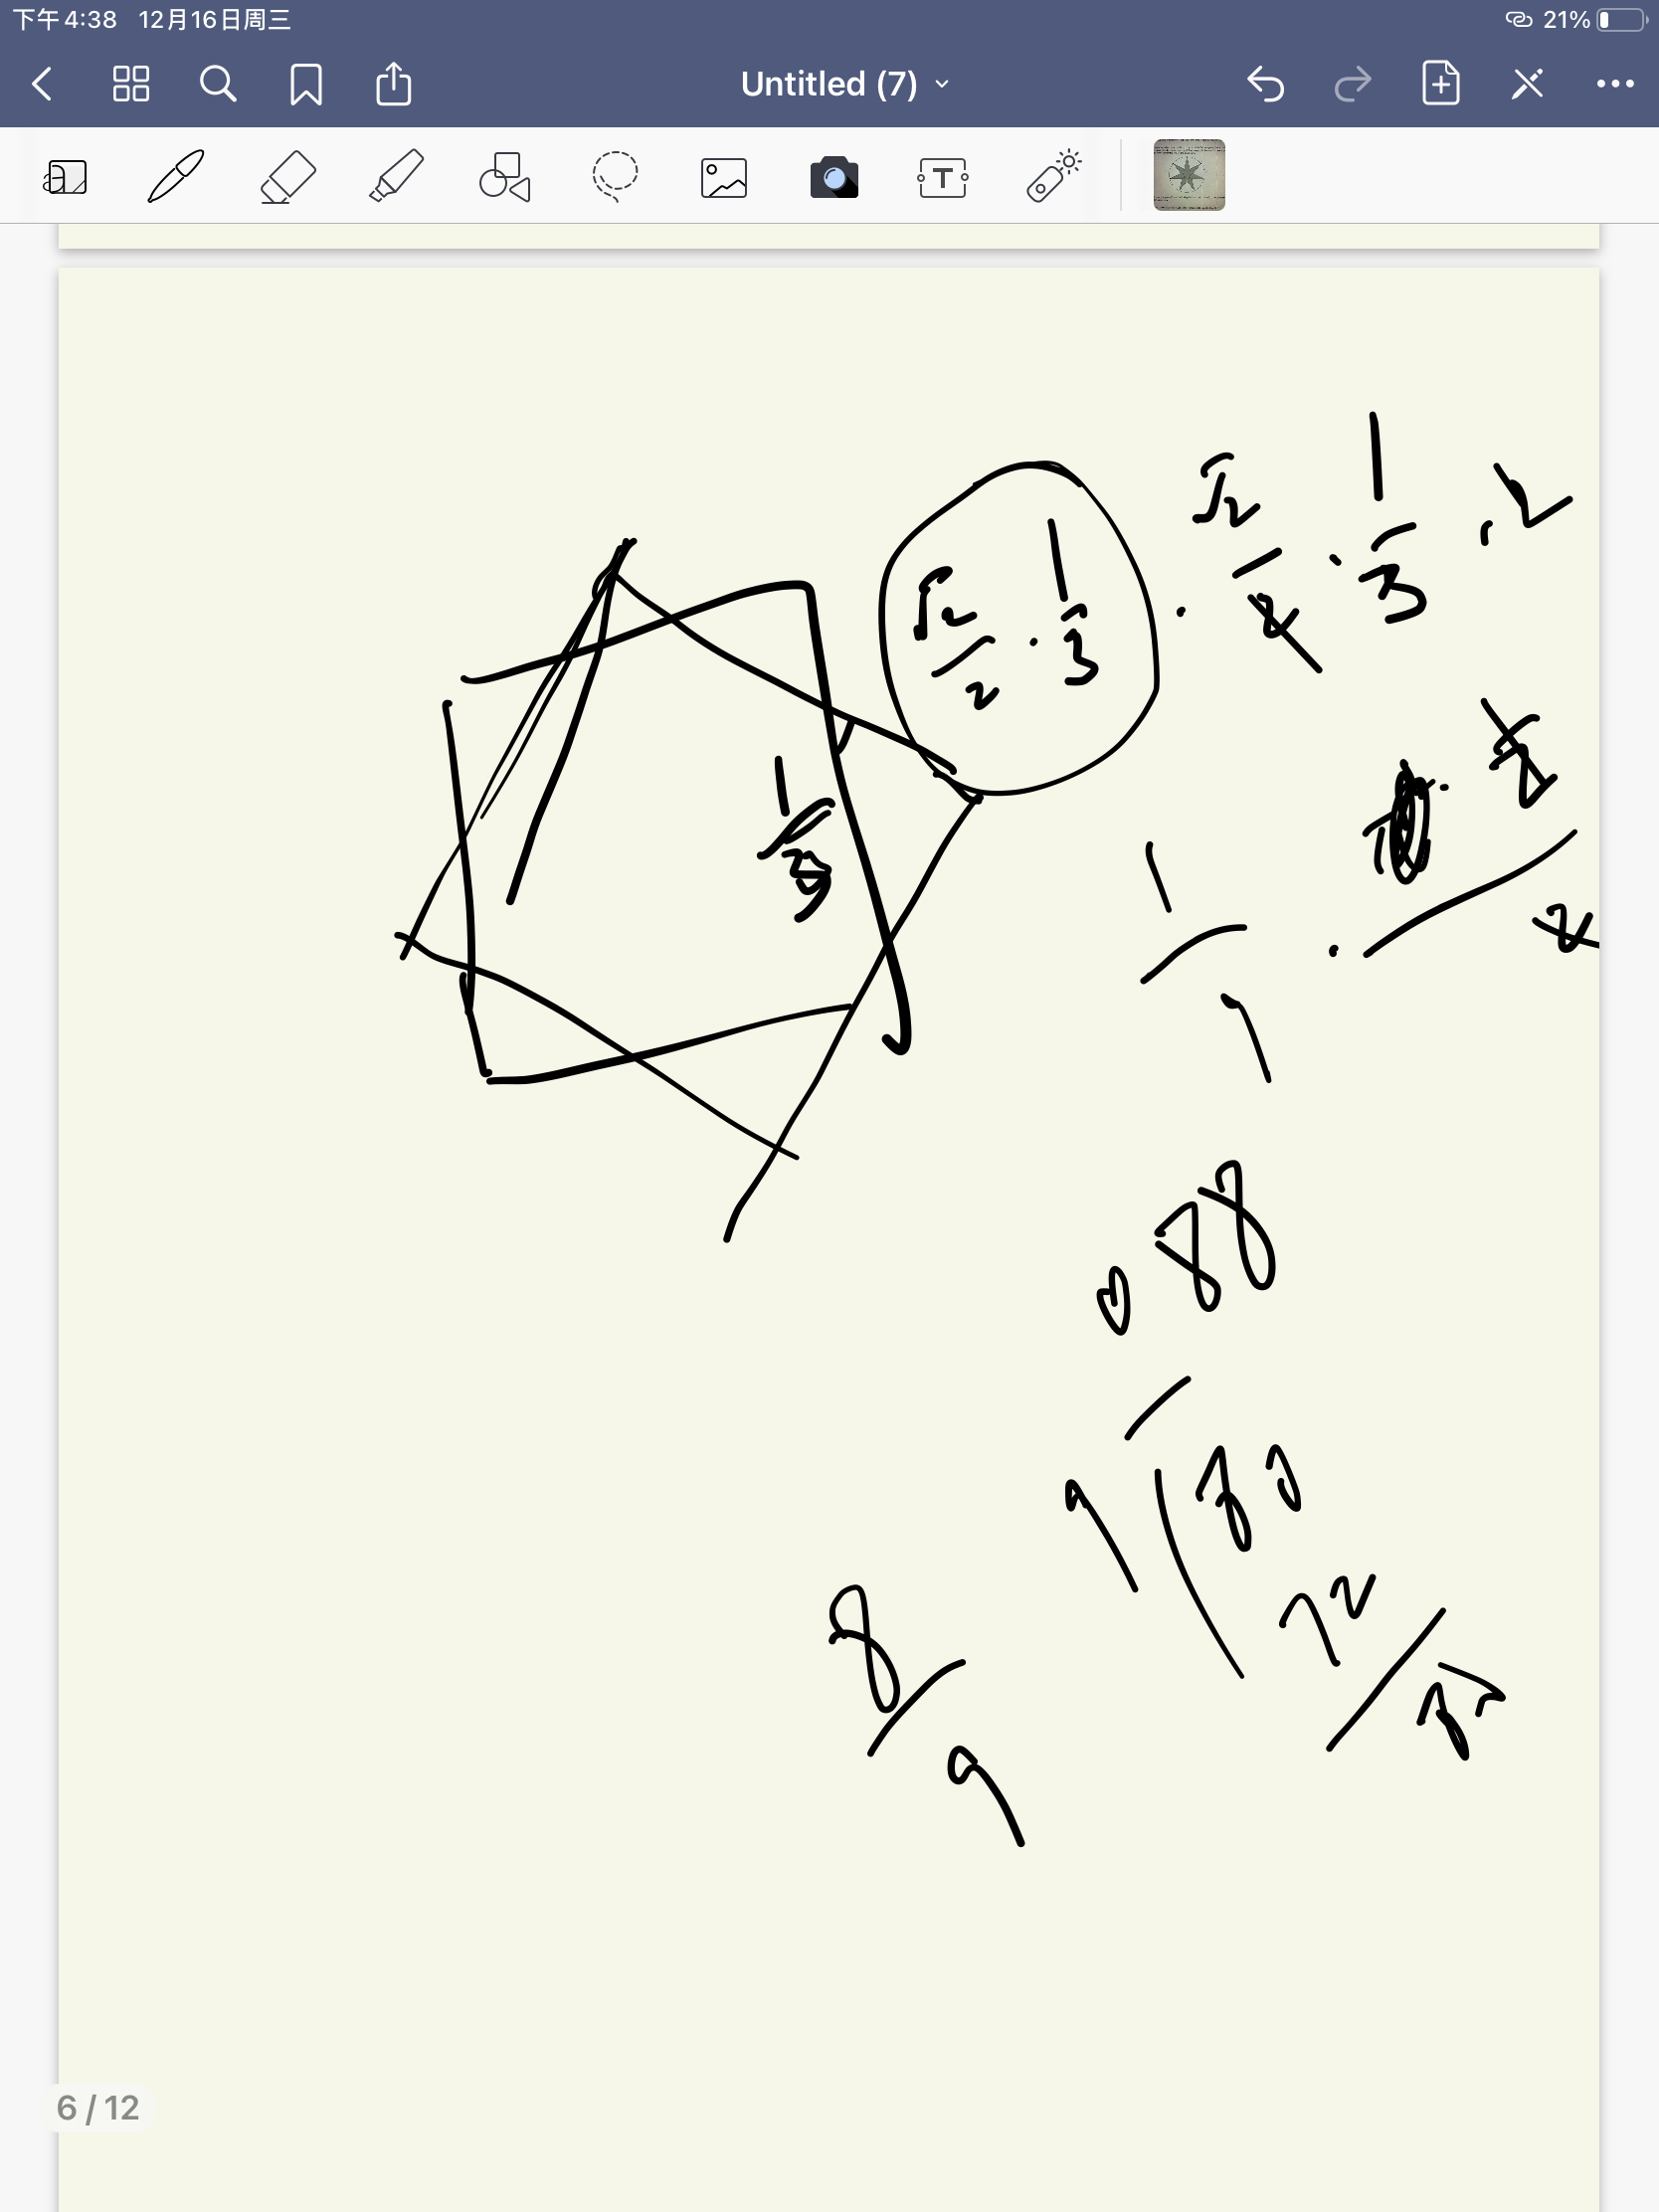 下午4:38 12月16日周三
21%
Untitled (7)
T
√2/2 · 1/3 · √2/4 · 1/3 · 2
1/3
1/9 ·
0 88
9 80
72
80
8/9
6 / 12